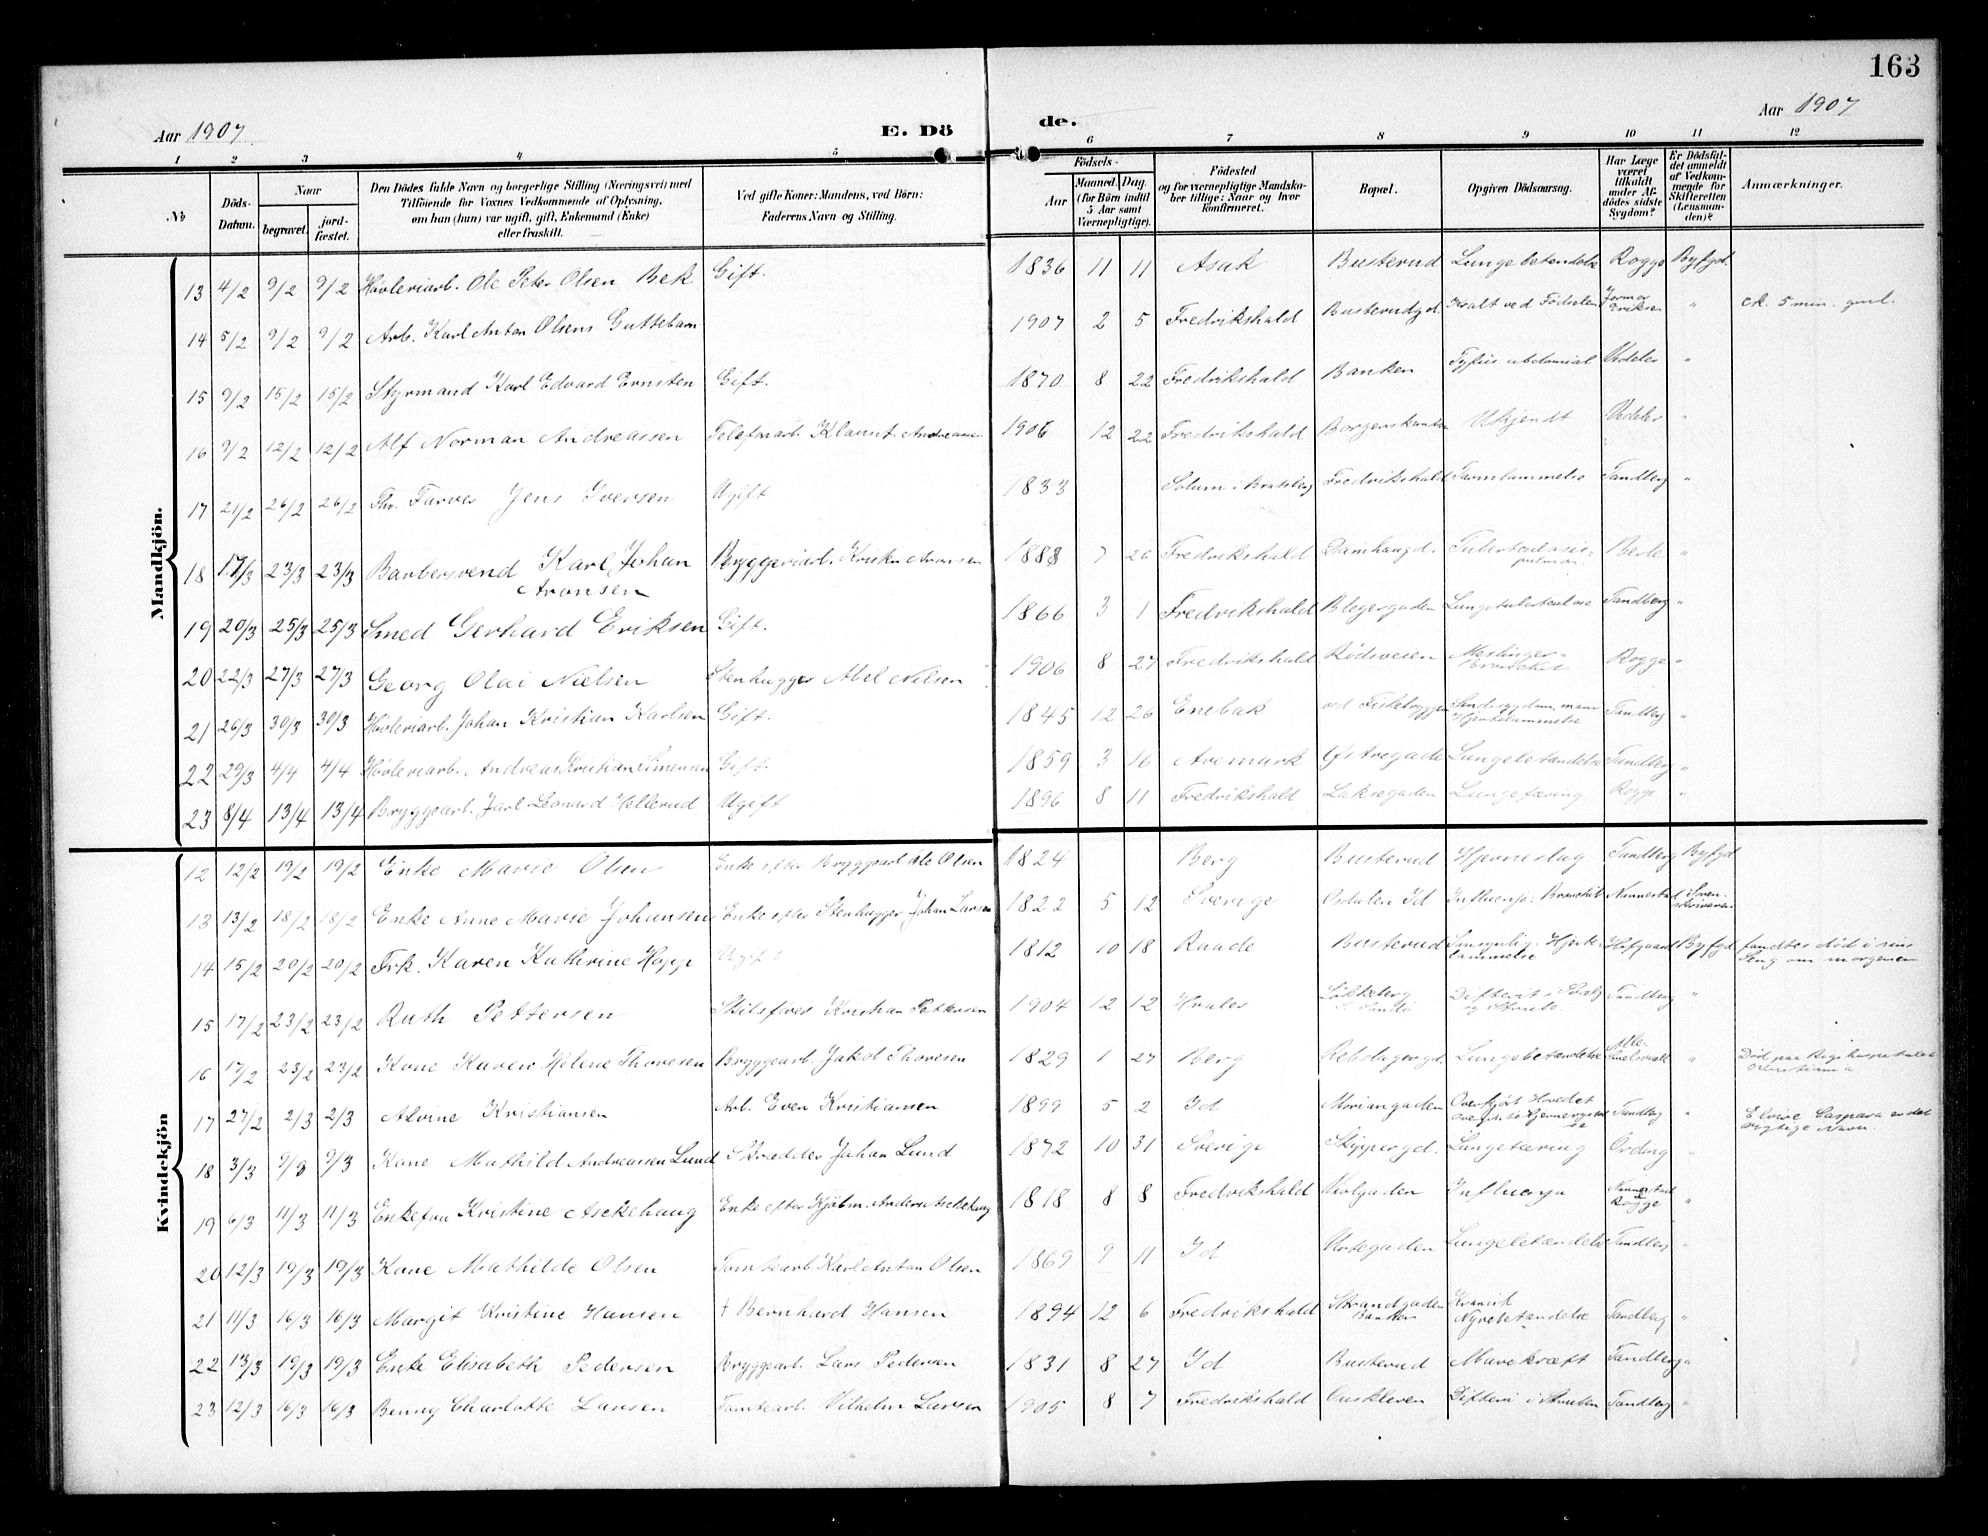 163
Aar 1907
E. Dö
de.
Aar 1907
1 2 3 4 5 6 7 8 9 10 11 12
No
Döds-Datum.
Naar
begravet.
jord-fæstet.
Den Dödes fulde Navn og borgerlige Stilling (Næringsvei) med
Tilföiende for Voxnes Vedkommende af Oplysning,
om han (hun) var ugift, gift, Enkemand (Enke)
eller fraskilt.
Ved gifte Koner: Mandens, ved Börn:
Faderens Navn og Stilling.
Födsels-
Aar
Maaned. Dag.
(for Börn indtil
5 Aar samt
Værnepligtige).
Födested
og for værnepligtige Mandska-
ber tillige: Naar og hvor
konfirmeret.
Bopæl.
Opgiven Dödsaarsag.
Har Læge
været
tilkaldt
under Af-
dödes sidste
Sygdom?
Er Dödsfal-
det anmeldt
af Vedkom-
mende for
Skifteretten
(Lensman-
den)?
Anmærkninger.
Mandkjön.
13 4/2 9/2 9/2 Høvleriarb. Ole Peter Olsen Bek Gift. 1836 11 11 Asak Busterud Lungebetændelse Rogge Byfgd.
14 5/2 9/2 9/2 Arb. Karl Anton Olsens Guttebarn 1907 2 5 Fredrikshald Busterudgd. Kvalt ved Fødselen Jormor Eriksen " ck. 5 min. gml.
15 9/2 15/2 15/2 Styrmand Karl Edvard Ernsten Gift. 1870 8 22 Fredrikshald Banken Tyfus abdominal Vedeler "
16 9/2 12/2 12/2 Alf Norman Andreassen Telefonarb. Andreassen 1906 12 22 Fredrikshald Ukjendt Vedeler "
17 21/2 26/2 26/2 Jens Iversen Ugift 1833 Solum i Bratsberg Fredrikshald Tarmlammelse Tandberg "
18 17/3 23/3 23/3 Barbersvend Karl Johan
Aronsen Bryggeriarb. Kristen Aronsen 1888 7 26 Fredrikshald Damhaugd. Tuberkulosis pulmon. Berle "
19 20/3 25/3 25/3 Smed Gerhard Eriksen Gift. 1866 3 1 Fredrikshald Blegergaden Lungetuberkulose Tandberg "
20 22/3 27/3 27/3 Georg Olai Nielsen Stenhugger Abel Nilsen 1906 8 27 Fredrikshald Rødsveien Meslinger- Bronchit Rogge "
21 26/3 30/3 30/3 Høvleriarb. Johan Kristian Karlsen Gift. 1845 12 26 Enebak ved Fiskebryggen Hjertelammelse Tandberg "
22 29/3 4/4 4/4 Høvleriarb. Andreas Kristian Simensen Gift. 1859 3 16 Aremark Østregade Lungebetændelse Tandberg "
23 8/4 13/4 13/4 Bryggearb. Jarl Leonard Hellerud Ugift 1896 8 11 Fredrikshald Laksegaden Lungetæring Rogge "
Kvindekjön
12 12/2 19/2 19/2 Enke Marie Olsen Enke efter Bryggearb. Ole Olsen 1824 Berg Busterud Hjerneslag Tandberg Byfgd.
13 13/2 18/2 18/2 Enke Anne Marie Johansen Enke efter Stenhugger Johan Larsen 1822 5 12 Sverige Osdalen Id Influenza: Bronchit Nannestad Soren-skriveren
14 15/2 20/2 20/2 Frk. Karen Kathrine Hopp Ugift 1812 10 18 Raade Busterud Sansynlig Hjerte-lammelse Hofgaard Byfgd. fandtes død i sin
Seng om morgenen
15 17/2 23/2 23/2 Ruth Pettersen Kristian Pettersen 1904 12 12 Hvaler Løkkeberg Difterit i Svælg og Strube. Tandberg "
16 17/2 23/2 23/2 Kone Karen Helene Thoresen Bryggearb. Jakob Thoresen 1829 1 27 Berg Rebslagergd. Lungebetændelse " Død paa Rigshospitalet
Kristiania
17 27/2 2/3 2/3 Alvine Kristiansen Arb. Even Kristiansen 1899 5 2 Id Moriangaden Overkjørt Hovedet Tandberg " Elvire Caspara er det
rigtige Navn.
18 3/3 9/3 9/3 Kone Mathild Andreassen Lund Skrædder Johan Lund 1872 10 31 Sverige Skippergd. Lungetæring Ording "
19 6/3 11/3 11/3 Enkefru Kristine Aschehaug Enke efter Kjøbm. Anders Aschehaug 1818 8 8 Fredrikshald Violgaden Influenza Nannestad Rogge "
20 12/3 19/3 19/3 Kone Mathilde Olsen Tomtearb. Karl Anton Olsen 1869 9 11 Id Urtegaden Lungebetændelse Tandberg "
21 11/3 16/3 16/3 Margit Kristine Hansen † Bernhard Hansen 1894 12 6 Fredrikshald Strandgaden Banken Kronisk Nyrebetændelse Tandberg "
22 13/3 19/3 19/3 Enke Elisabeth Pedersen Bryggearb. Lars Pedersen 1831 8 27 Id Busterud Mavekræft Tandberg "
23 12/3 16/3 16/3 Benny Charlotte Larsen Tomtearb. Vilhelm Larsen 1905 8 7 Fredrikshald Ouskleven Difteri i Struben Tandberg "